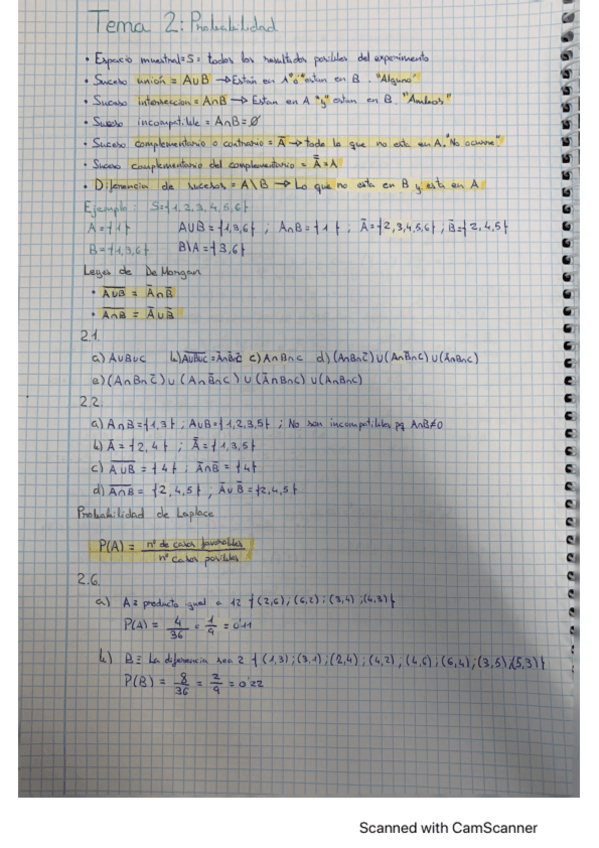 Tema 2: Probabilidad
• Espacio muestral = S = todos los resultados posibles del experimento
• Suceso unión = A∪B → Están en A "o" están en B. "Alguno"
• Suceso intersección = A∩B → Estan en A "y" estan en B. "Ambos"
• Suceso incompatible = A∩B = ∅
• Suceso complementario o contrario = A̅ → todo lo que no esta en A. "No ocurre"
• Suceso complementario del complementario = A̿ = A
• Diferencia de sucesos = A\B → Lo que no esta en B y esta en A
Ejemplo: S={1,2,3,4,5,6}
A={1} A∪B={1,3,6} ; A∩B={1} ; A̅={2,3,4,5,6} ; B̅={2,4,5}
B={1,3,6} B\A={3,6}
Leyes de De Morgan
• \overline{A∪B} = A̅∩B̅
• \overline{A∩B} = A̅∪B̅
2.1.
a) A∪B∪C b) \overline{A∪B∪C} = A̅∩B̅∩C̅ c) A∩B∩C d) (A∩B∩C̅)∪(A∩B̅∩C)∪(A̅∩B∩C)
e) (A∩B∩C̅)∪(A∩B̅∩C)∪(A̅∩B∩C)∪(A∩B∩C)
2.2.
a) A∩B={1,3} ; A∪B={1,2,3,5} ; No son incompatibles pq A∩B≠0
b) A̅={2,4} ; A̿={1,3,5}
c) \overline{A∪B} = {4} ; A̅∩B̅ = {4}
d) \overline{A∩B} = {2,4,5} ; A̅∪B̅={2,4,5}
Probabilidad de Laplace
P(A) = nº de casos favorables / nº casos posibles
2.6.
a) A≡ producto igual a 12 {(2,6);(6,2);(3,4);(4,3)}
P(A) = 4/36 = 1/9 = 0'11
b) B≡ La diferencia sea 2 {(1,3);(3,1);(2,4);(4,2);(4,6);(6,4);(3,5);(5,3)}
P(B) = 8/36 = 2/9 = 0'22
Scanned with CamScanner